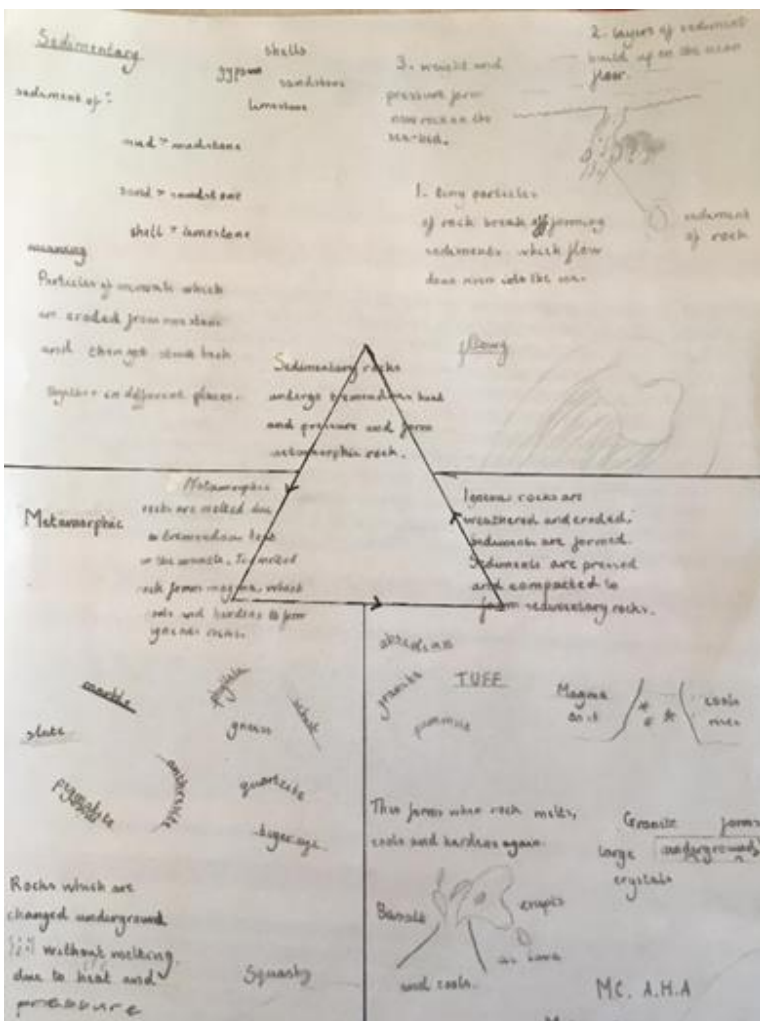 Sedimentary
shells
gypsum
sandstone
limestone
sediment of:
mud = mudstone
sand = sandstone
shell = limestone
meaning
Particles of minerals which
are eroded from
and
together in different places.
3. weight and
pressure form
new rock on the
sea-bed.
2. layers of sediment
build up on the ocean
floor.
1. tiny particles
of rock break off forming
sediments which flow
down rivers into the sea.
sediment
of rock
Sedimentary rocks
undergo tremendous heat
and pressure and form
metamorphic rock.
Metamorphic
Metamorphic
rocks are melted due
to tremendous heat
in the mantle. The melted
rock forms magma, which
cools and hardens to form
igneous rocks.
Igneous rocks are
weathered and eroded,
sediments are formed.
Sediments are pressed
and compacted to
form sedimentary rocks.
marble
phyllite
schist
slate
gneiss
anthracite
quartzite
Rocks which are
changed underground
without melting
due to heat and
pressure
Squashy
granite
TUFF
Magma
cools
This forms when rock melts,
cools and hardens again.
Granite forms
large underground
crystals
Basalt
erupts
as lava
and cools.
MC. A.H.A